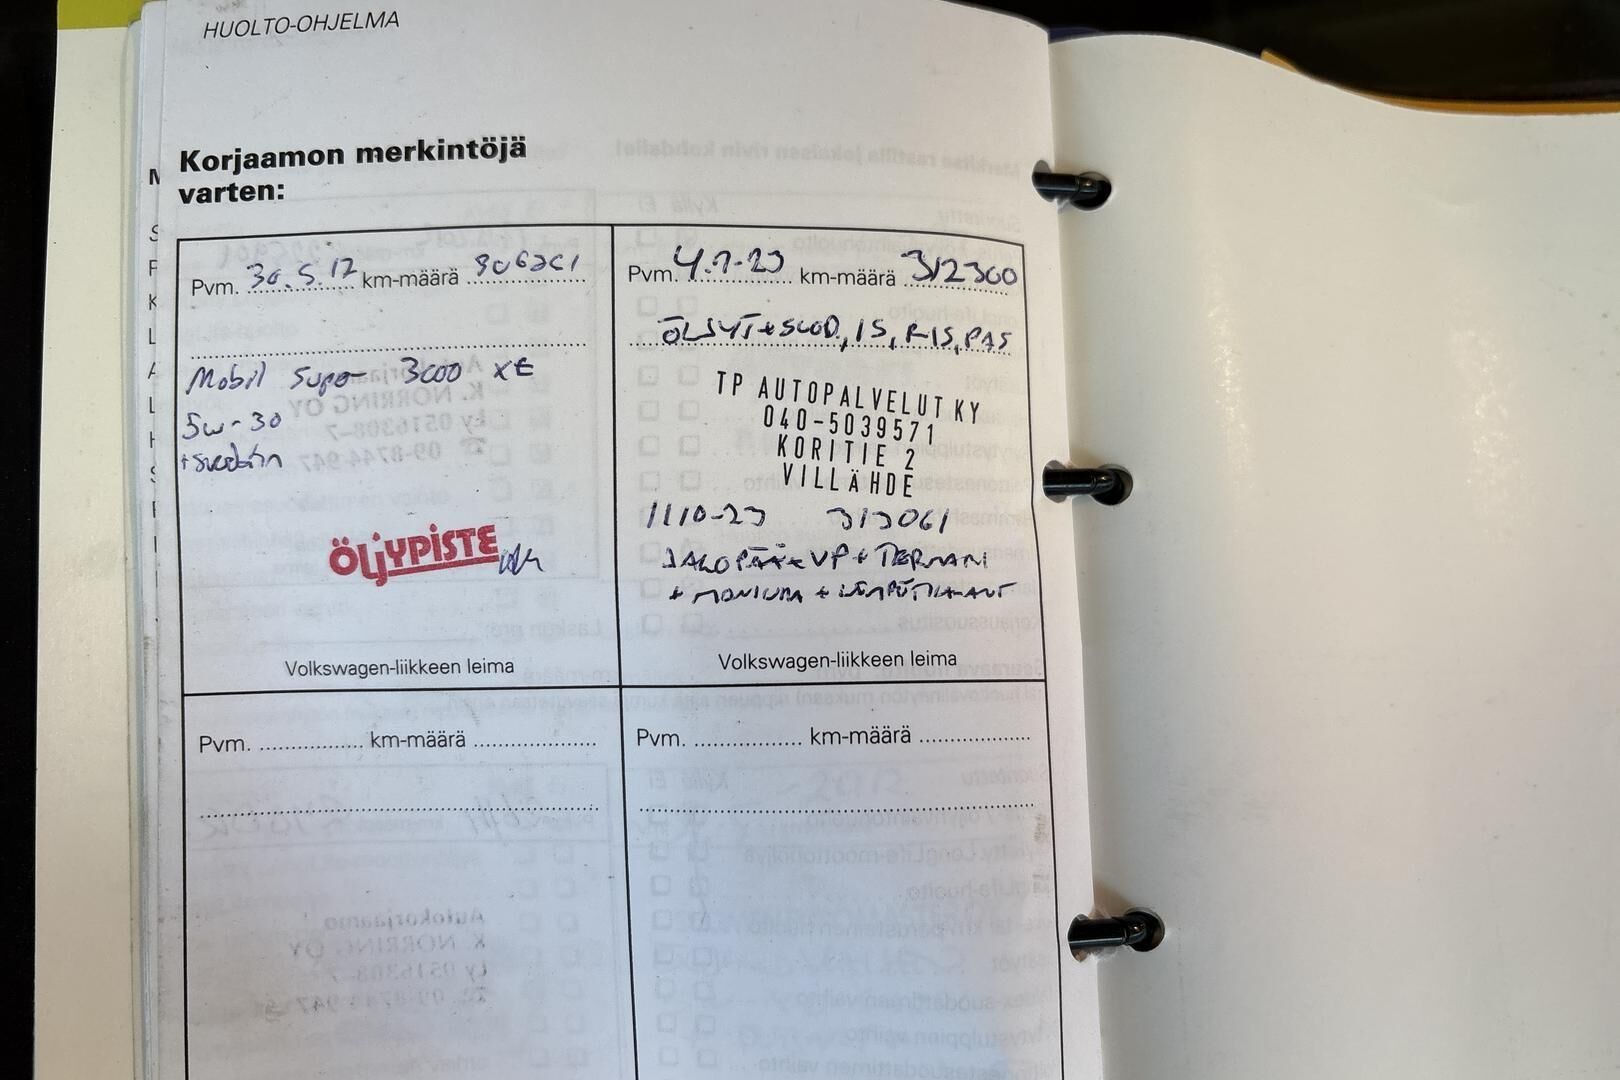 HUOLTO-OHJELMA
Korjaamon merkintöjä
varten:
Pvm. 30.5.17 km-määrä
Mobil Super 3000 XE
5w-30
+suodatin
ÖLJYPISTE
Volkswagen-liikkeen leima
Pvm. 4.7-23 km-määrä 312300
ÖLJYT+SUOD, IS, RIS, PAS
TP AUTOPALVELUT KY
040-5039571
KORITIE 2
VILLÄHDE
1110-23 313061
JAKOPÄÄ+VP+TERMARI
+ MONIURA +
Volkswagen-liikkeen leima
Pvm. km-määrä
Pvm. km-määrä